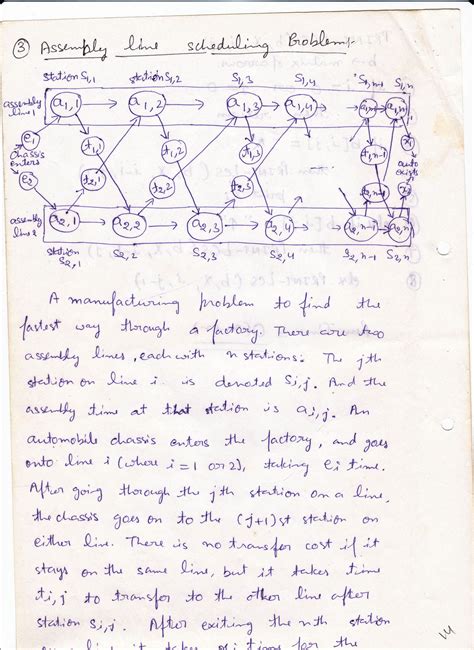 ③ Assembly line scheduling Problem:
station S1,1 station S1,2 S1,3 S1,4 S1,n-1 S1,n
assembly line 1 a1,1 a1,2 a1,3 a1,4 a1,n-1 a1,n
e1 t1,1 t1,2 t1,3 t1,n-1 x1
chassis enters auto exists
e2 t2,1 t2,2 t2,3 t2,n-1 x2
assembly line 2 a2,1 a2,2 a2,3 a2,4 a2,n-1 a2,n
station S2,1 S2,2 S2,3 S2,4 S2,n-1 S2,n
A manufacturing problem to find the
fastest way through a factory. There are two
assembly lines, each with n stations: The jth
station on line i is denoted Si,j. And the
assembly time at that station is ai,j. An
automobile chassis enters the factory, and goes
onto line i (where i = 1 or 2), taking ei time.
After going through the jth station on a line,
the chassis goes on to the (j+1)st station on
either line. There is no transfer cost if it
stays on the same line, but it takes time
ti,j to transfer to the other line after
station Si,j. After exiting the nth station
line, it takes xi time for the